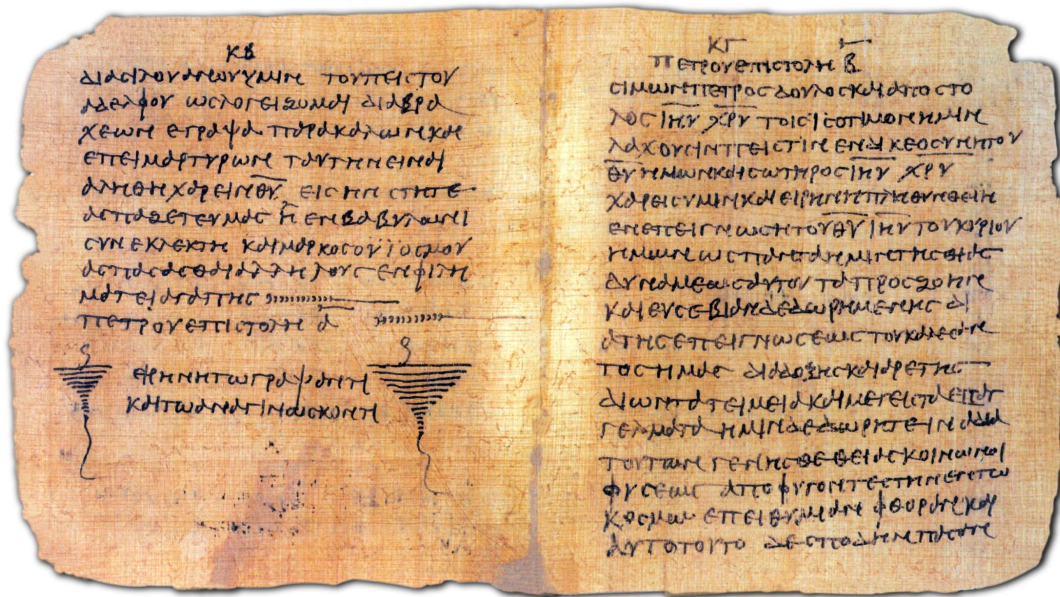 ΚΒ
διασιλουανουυμιν τουπειστου
αδελφου ωσλογειζομαι διαβρα
χεων εγραψα παρακαλωνκαι
επειμαρτυρων ταυτηνειναι
αληθηχαρεινθ̅υ̅ ειςηνστητε
ασπαζετευμας η ενβαβυλωνι
συνεκλεκτη καιμαρκοσουϊοσμου
ασπασασθαιαλληλους ενφιλη
ματειαγαπης
πετρουεπιστολη α̅
ειρηνητωγραψαντι
καιτωαναγινωσκοντι
ΚΓ
πετρουεπιστολη β̅
σιμωνπετροσδουλοσκαιαποστο
λος ι̅η̅υ̅ χ̅ρ̅υ̅ τοισϊσοτιμονημιν
λαχουσινπειστιν ενδικεοσυνητου
θ̅υ̅ημωνκαισωτηρος ι̅η̅υ̅ χ̅ρ̅υ̅
χαρεισυμινκαιειρηνηπληθυνθειη
ενεπειγνωσητουθ̅υ̅ ι̅η̅υ̅ τουκυριου
ημων ωσπανταημιντησθειας
δυναμεωσαυτου ταπροσζοην
καιευσεβιανδεδωρημενης δι
ατησεπειγνωσεως τουκαλεσαν
τοσημας διαδοξησκαιαρετης
διωντατειμειακαιμεγεισταεπαγ
γελματα ημινδεδωρητεϊναδια
τουτων γενησθεθειασκοινωνοι
φυσεως αποφυγοντεστηνεντω
κοσμω επειθυμιαν φθορανκαι
αυτοτουτο δεσπουδηνπασαν